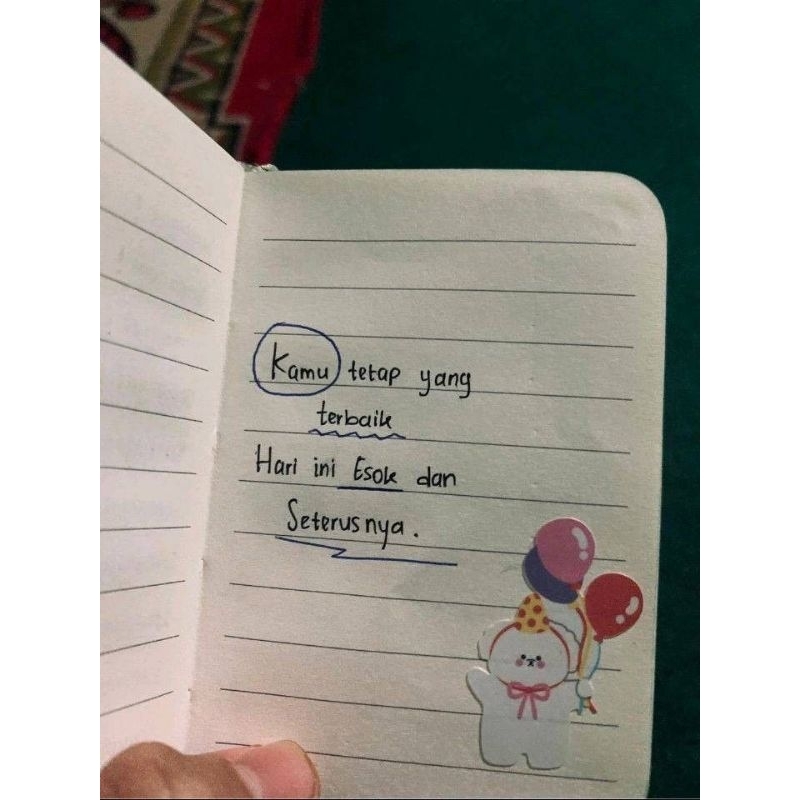 Kamu tetap yang
terbaik
Hari ini Esok dan
Seterusnya.